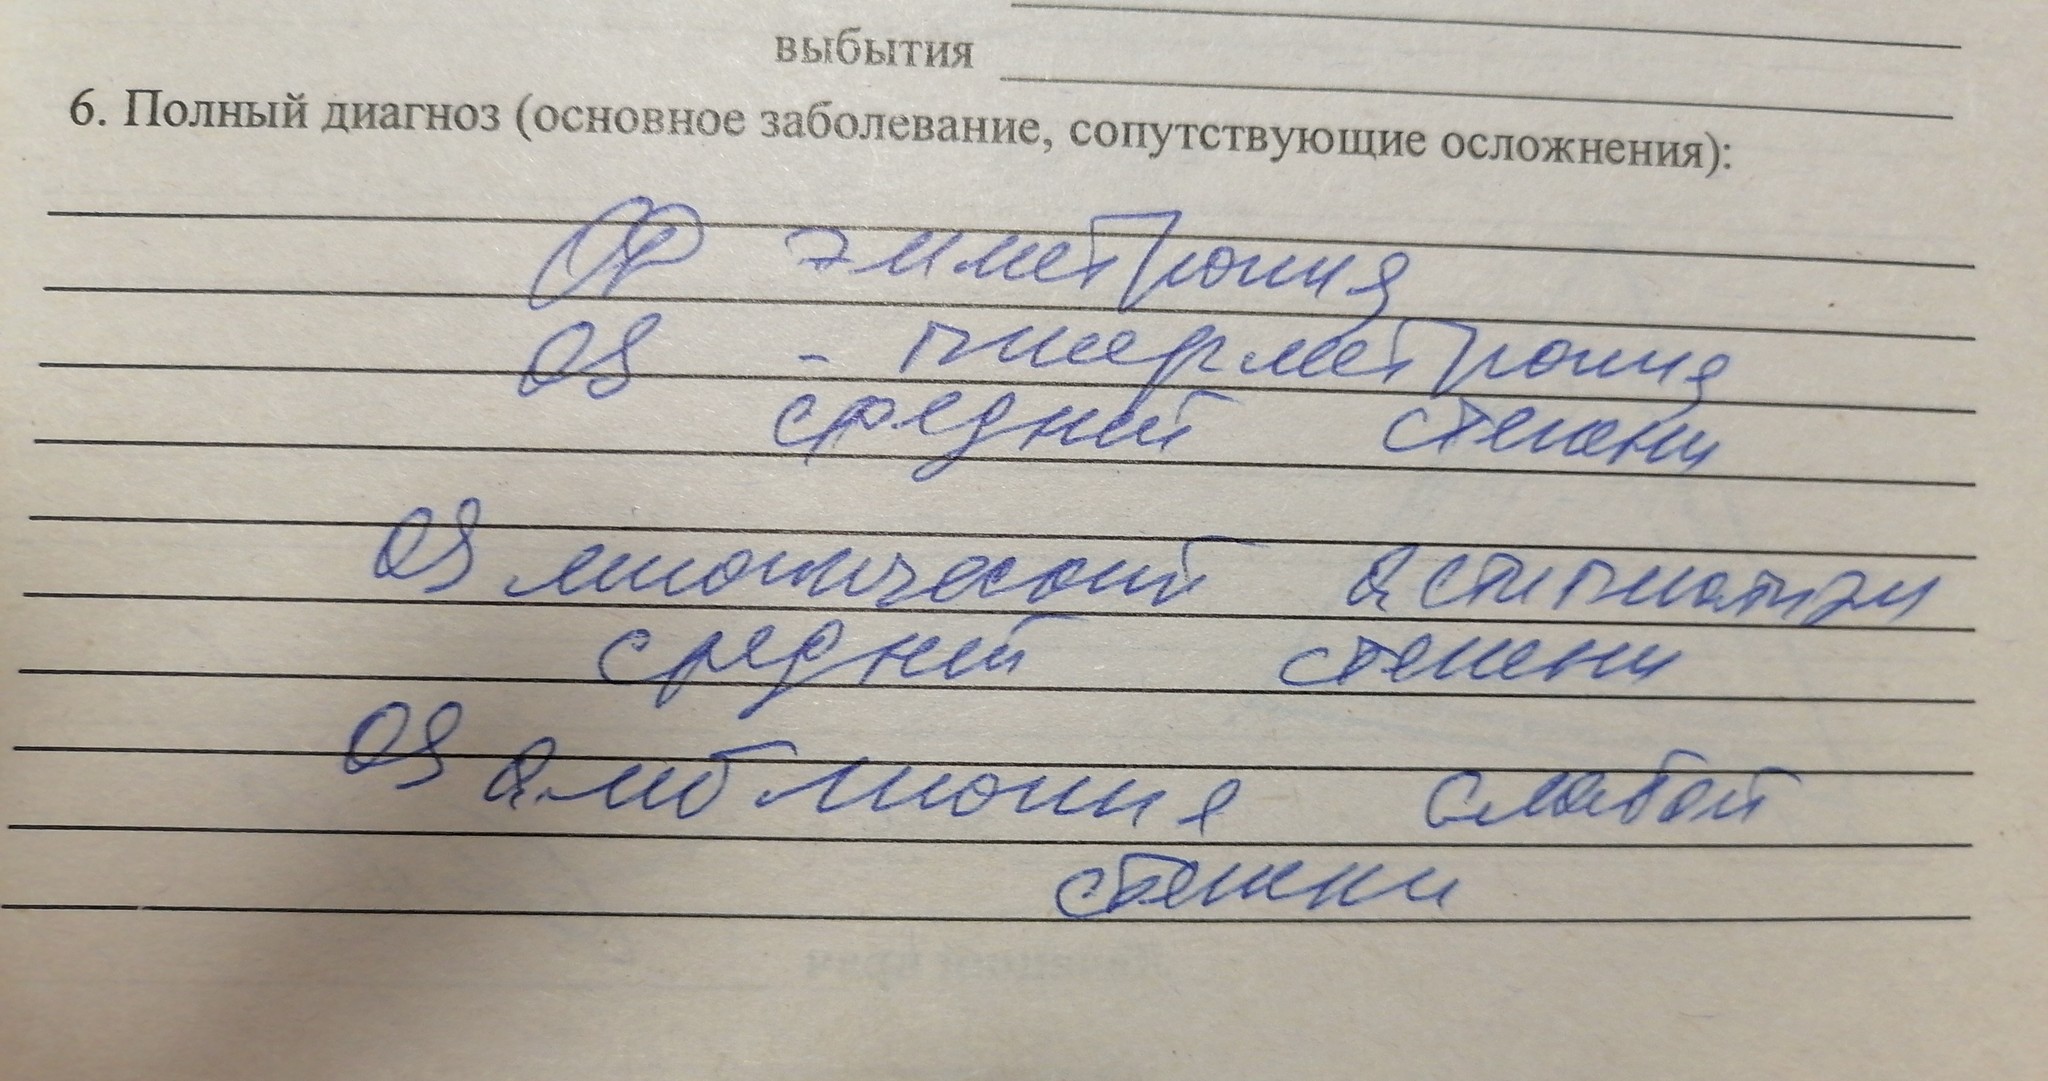 выбытия
6. Полный диагноз (основное заболевание, сопутствующие осложнения):
OD эмметропия
OS - гиперметропия
средней степени
OS миопический астигматизм
средней степени
OS амблиопия слабой
степени